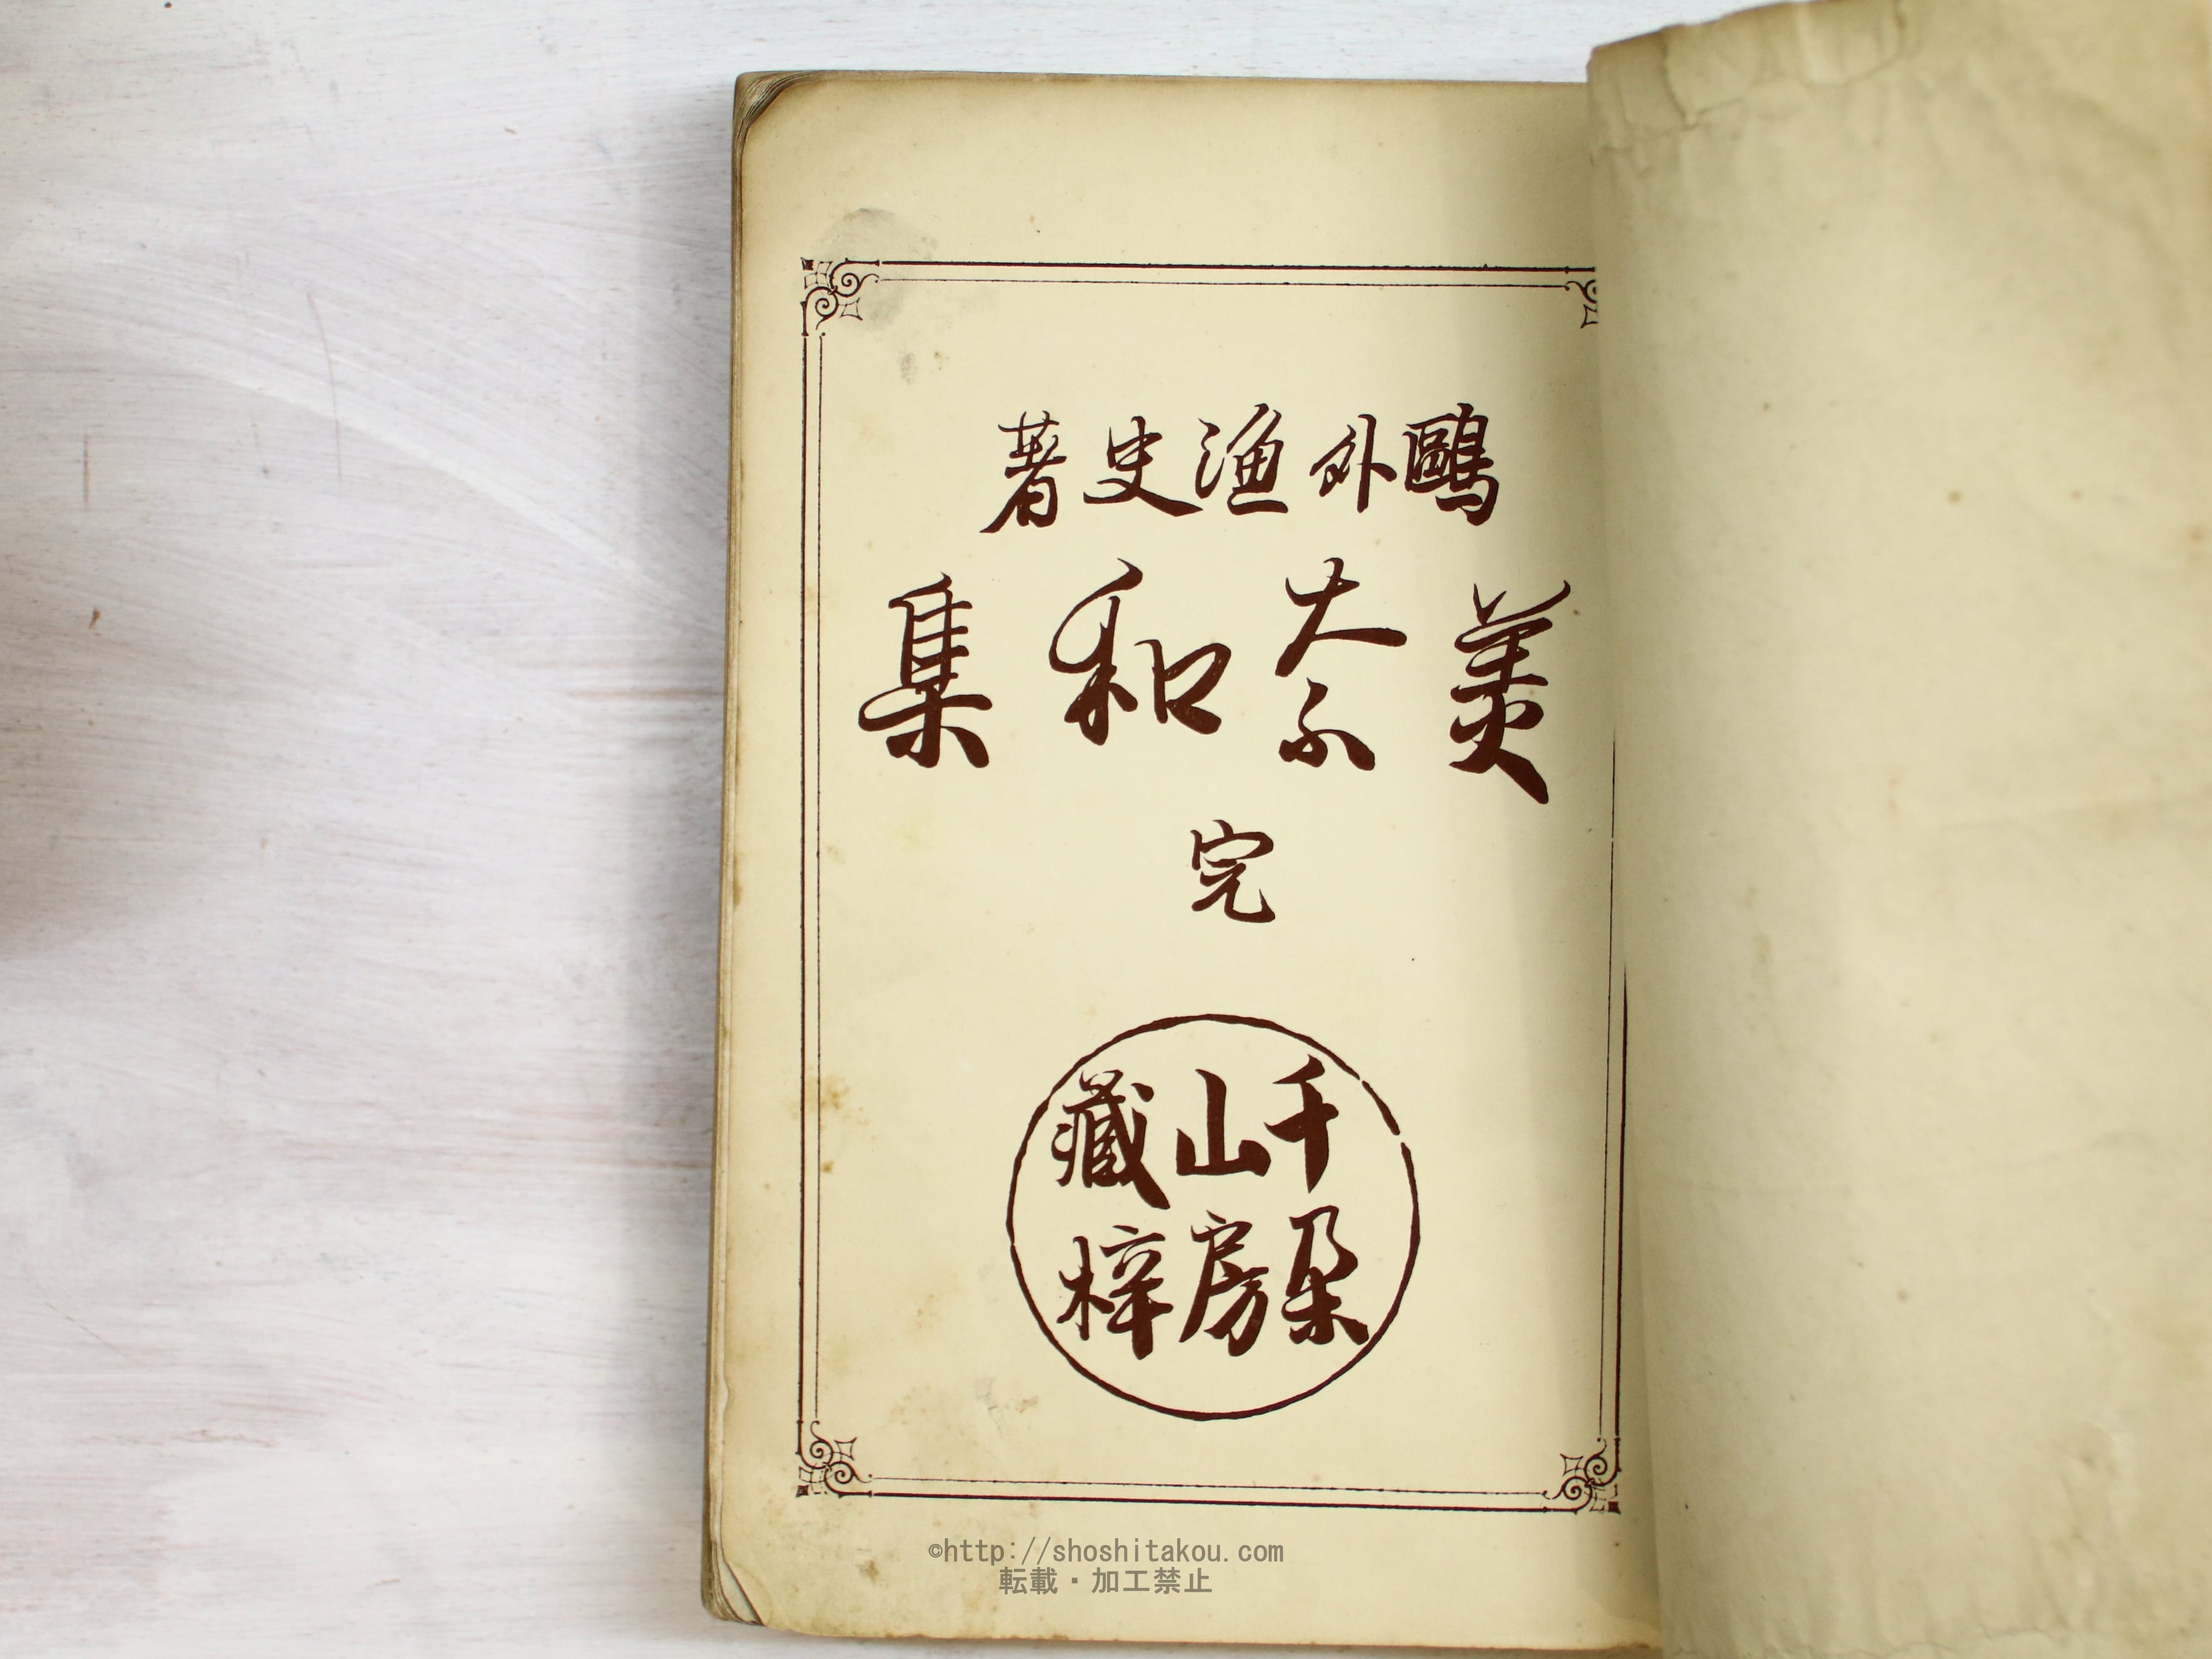 鷗外漁史著
美奈和集
完
千朶
山房
藏梓
©http://shoshitakou.com
転載・加工禁止